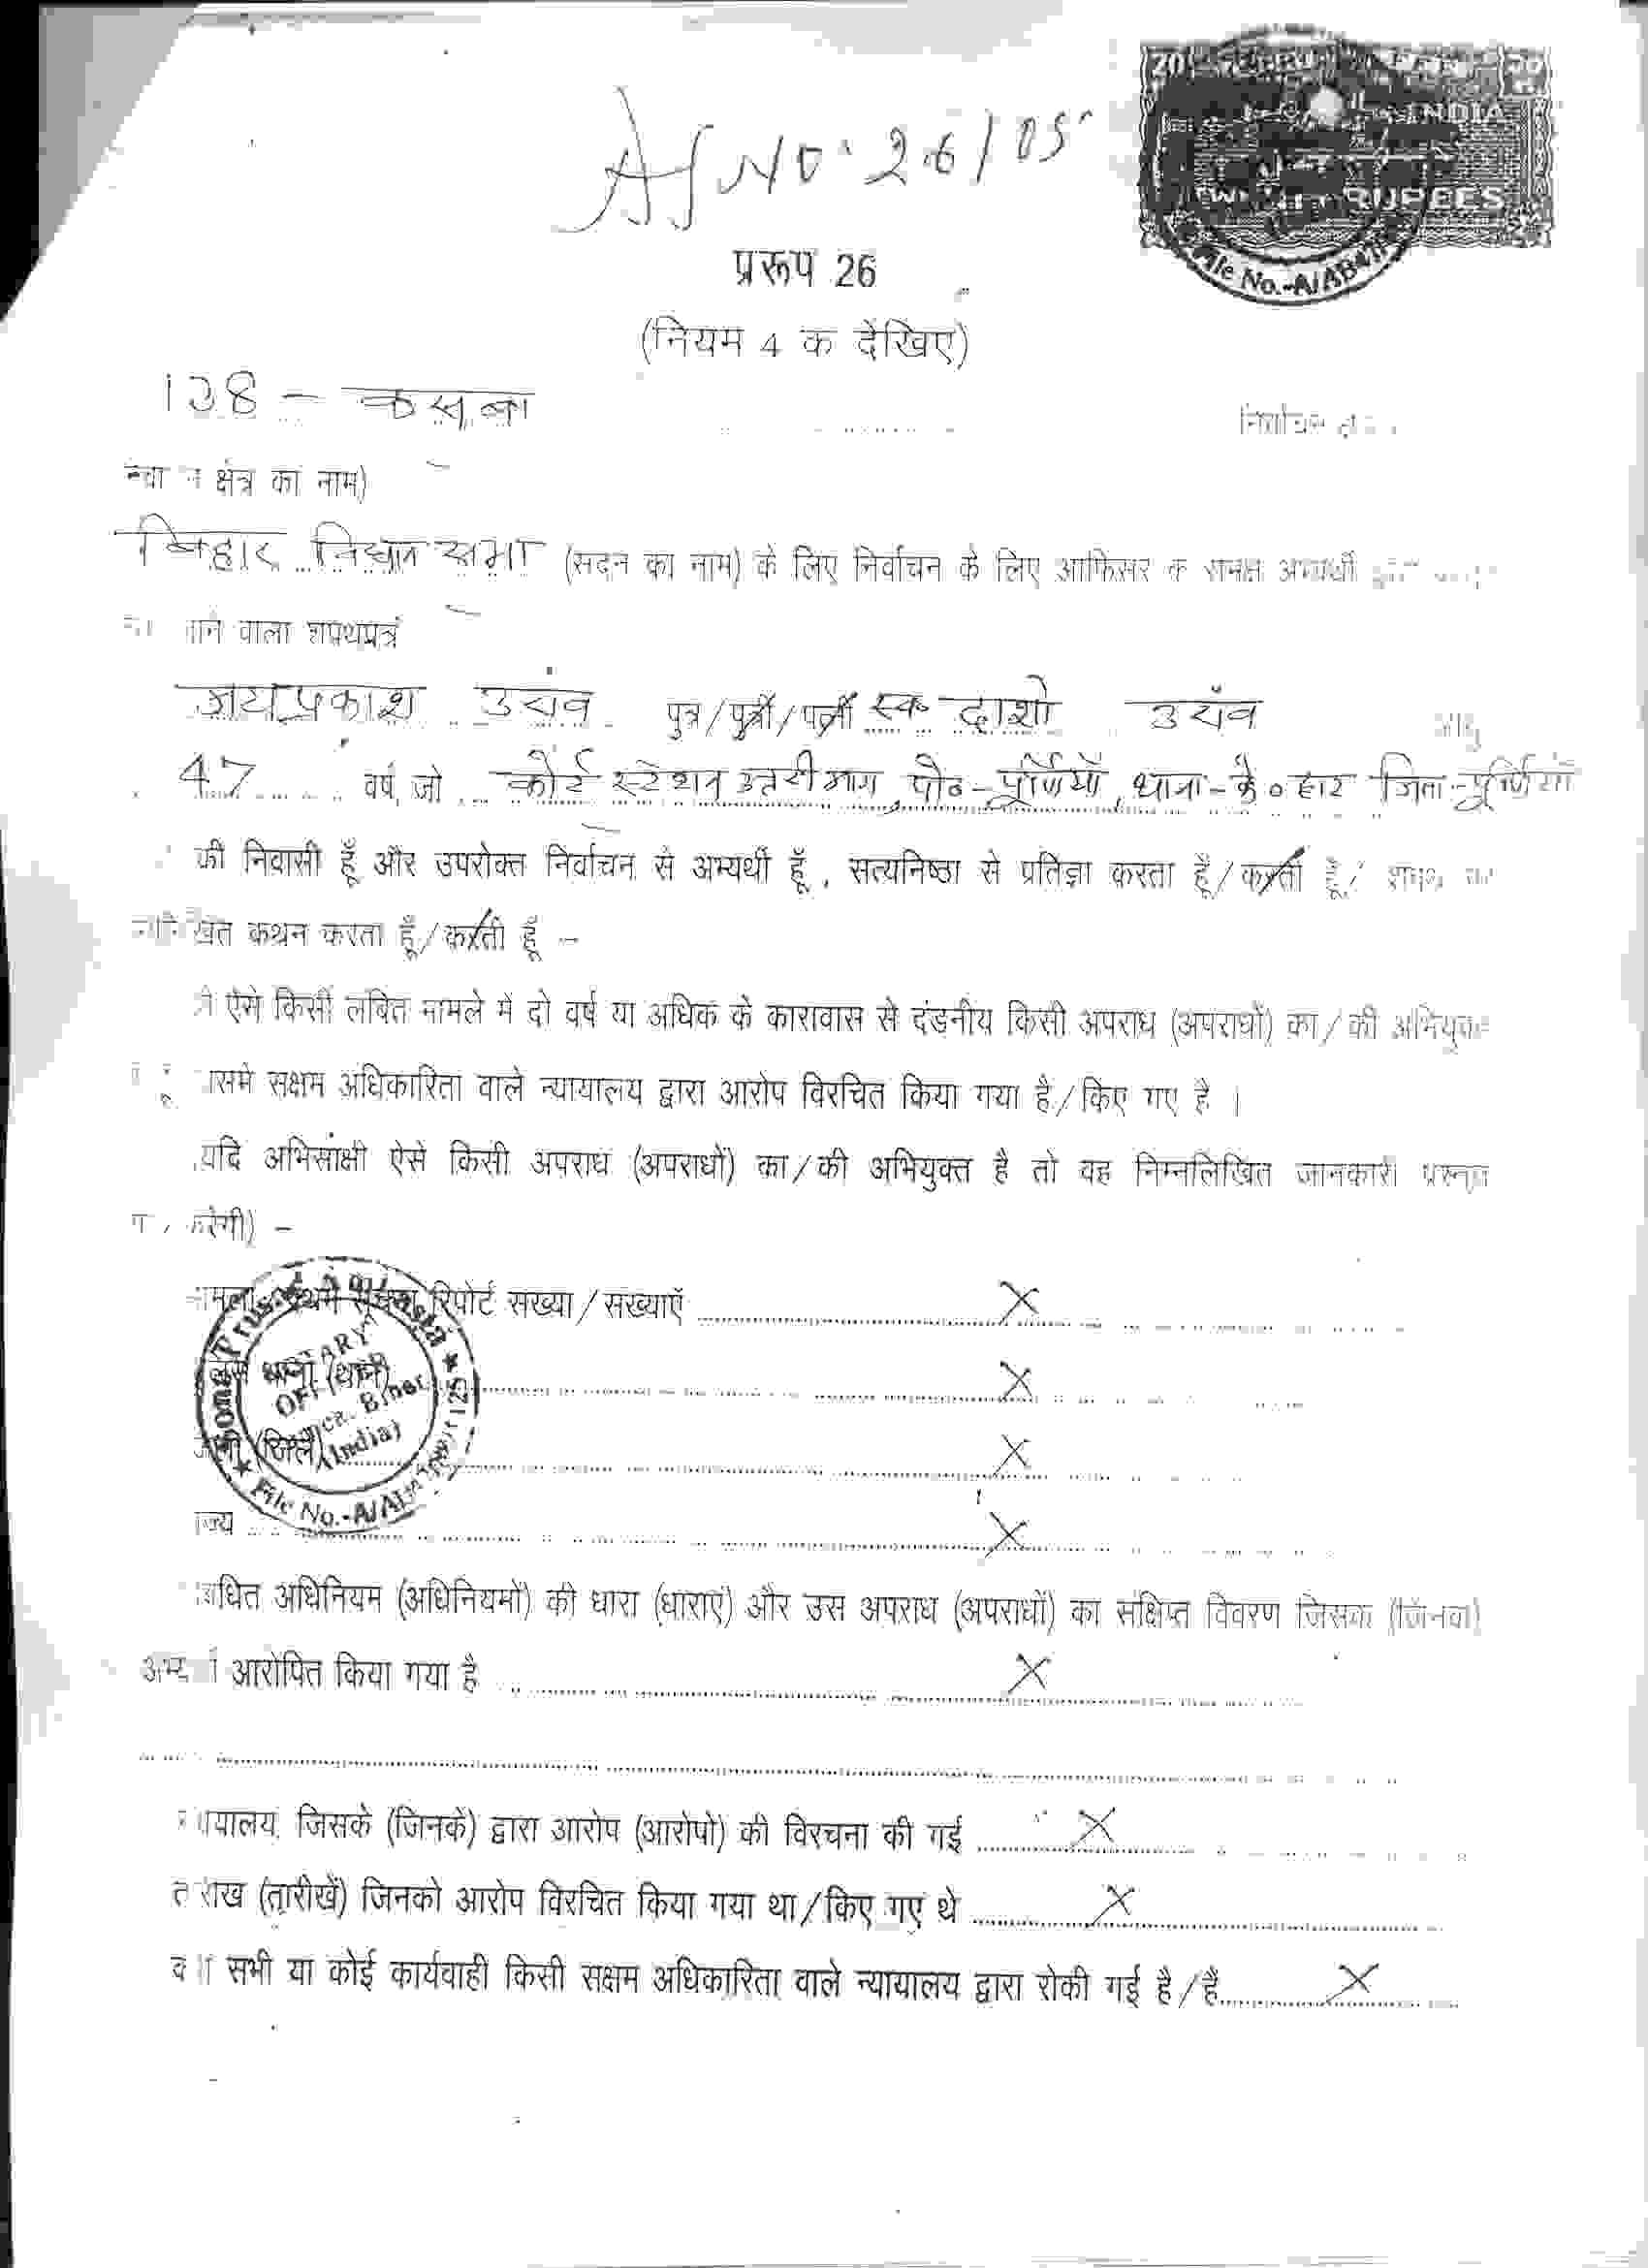 Aff No. 26/05
TWENTY RUPEES
INDIA
File No.-A/AB
प्ररूप 26
(नियम 4 क देखिए)
138 - कसबा
क्षेत्र का नाम)
बिहार विधान सभा (सदन का नाम) के लिए निर्वाचन के लिए आफिसर के समक्ष अभ्यर्थी
जाने वाला शपथपत्र
जयप्रकाश उरांव पुत्र/पुत्री/पत्नी स्व० दाशो उरॉव
47 वर्ष, जो कोर्ट स्टेशन उत्तरी भाग, पो०-पूर्णियाँ, थाना-के० हाट जिला-पूर्णियाँ
की निवासी हूँ और उपरोक्त निर्वाचन से अभ्यर्थी हूँ, सत्यनिष्ठा से प्रतिज्ञा करता हूँ/करती हूँ/
कथन करता हूँ/करती हूँ –
ऐसे किसी लंबित मामले में दो वर्ष या अधिक के कारावास से दंडनीय किसी अपराध (अपराधों) का/की अभियुक्त
सक्षम अधिकारिता वाले न्यायालय द्वारा आरोप विरचित किया गया है/किए गए है ।
यदि अभिसाक्षी ऐसे किसी अपराध (अपराधों) का/की अभियुक्त है तो वह निम्नलिखित जानकारी प्रस्तुत
करेगी) –
रिपोर्ट संख्या/संख्याएँ X
थाना (थाने) X
(जिले) X
X
NOTARY
(India)
File No.-A/AB
अधिनियम (अधिनियमों) की धारा (धाराएं) और उस अपराध (अपराधों) का संक्षिप्त विवरण जिसके (जिनका)
आरोपित किया गया है X
जिसके (जिनके) द्वारा आरोप (आरोपों) की विरचना की गई X
(तारीखें) जिनको आरोप विरचित किया गया था/किए गए थे X
सभी या कोई कार्यवाही किसी सक्षम अधिकारिता वाले न्यायालय द्वारा रोकी गई है/हैं X